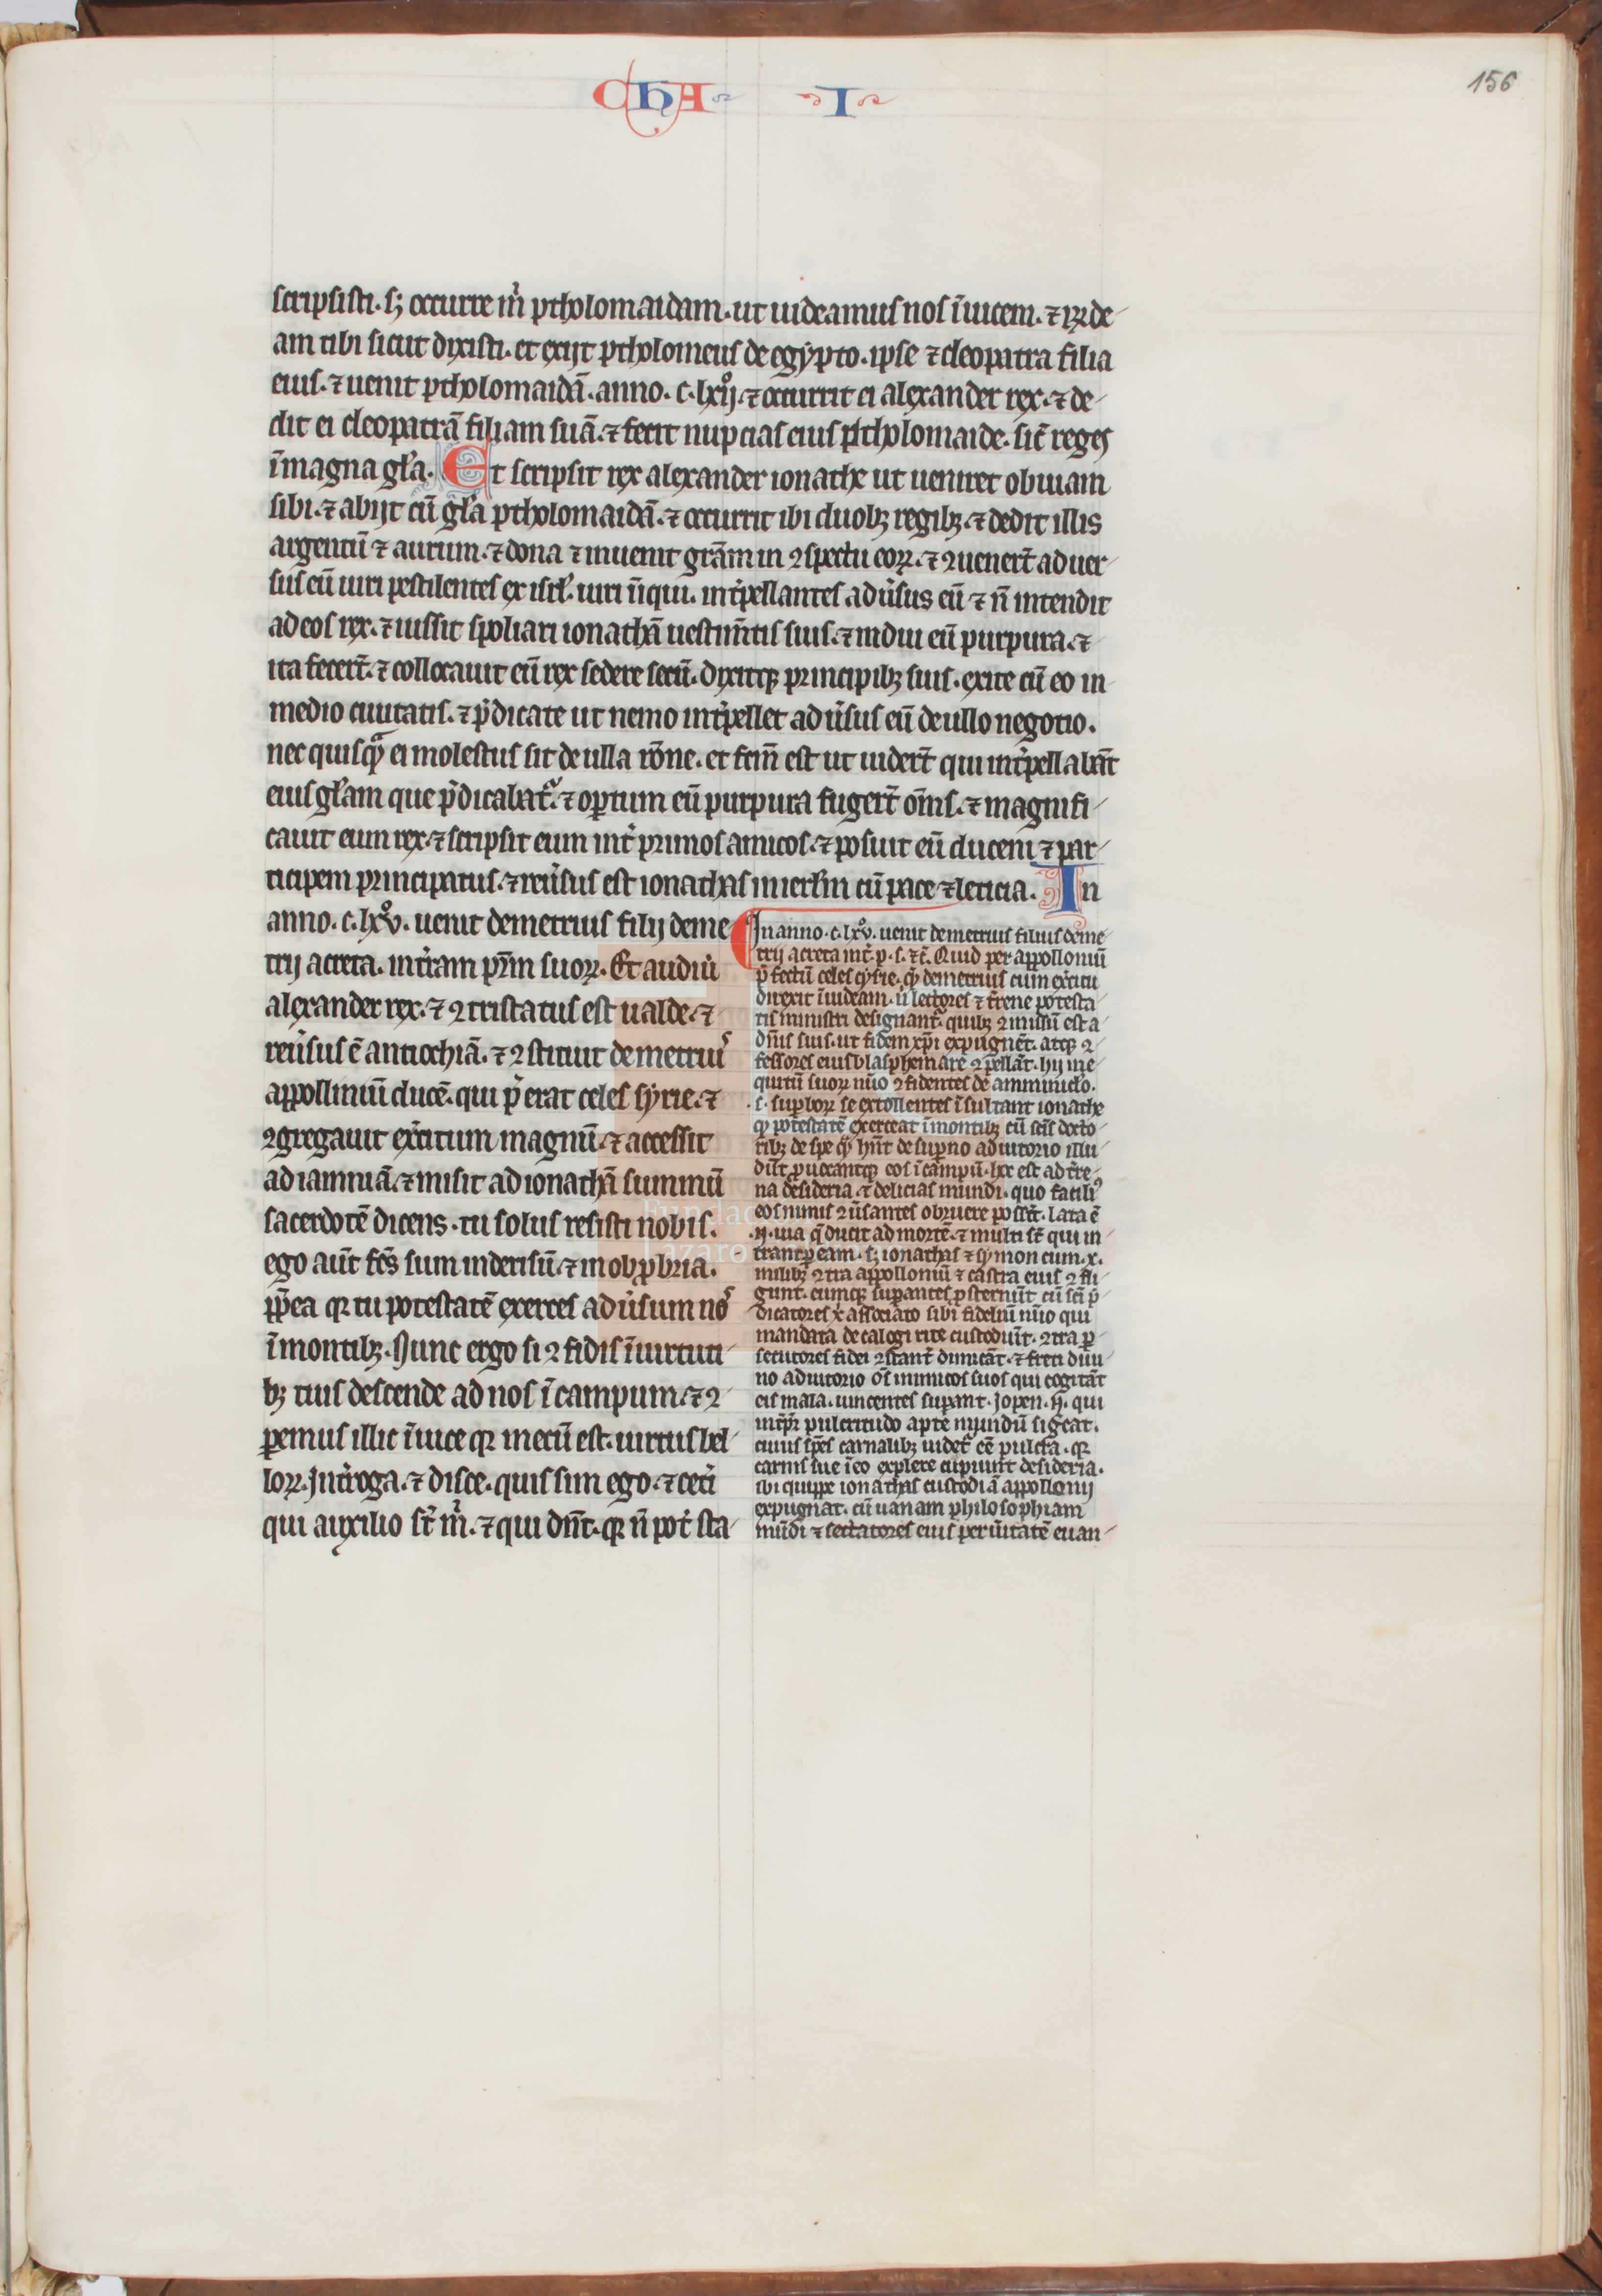 CHA I
156
scripsisti. sꝫ occurre m̉ ptholomaidam. ut uideamus nos ĩuicem. ⁊ spõde
am tibi sicut dixisti. et exijt ptholomeus de egypto. ipse ⁊ cleopatra filia
eius. ⁊ uenit ptholomaidã. anno. c. lxºij. ⁊ occurrit ei alexander rex. ⁊ de
dit ei cleopatrã filiam suã. ⁊ fecit nupcias eius ptholomaide. sic̃ reges
ĩ magna gła. Et scripsit rex alexander ionathe ut ueniret obuiam
sibi. ⁊ abijt cũ gła ptholomaidã. ⁊ occurrit ibi duobꝫ regibꝫ. ⁊ dedit illis
argentũ ⁊ aurum. ⁊ dona ⁊ inuenit grãm in ꝯspectu eoꝝ. ⁊ ꝯuener̃t aduer
sus eũ uiri pestilentes ex isrł. uiri ĩiqui. int̉pellantes adũsus eũ ⁊ ñ intendit
ad eos rex. ⁊ iussit spoliari ionathã uestim̃tis suis. ⁊ indui eũ purpura. ⁊
ita fecer̃t. ⁊ collocauit eũ rex sedere secũ. dixitqꝫ principibꝫ suis. exite cũ eo in
medio ciuitatis. ⁊ p̉dicate ut nemo int̉pellet adũsus eũ de ullo negotio.
nec quisqᷓ ei molestus sit de ulla rõne. et fcm̃ est ut uider̃t qui int̉pellabãt
eius głam que p̉dicabat᷑. ⁊ opertum eũ purpura fuger̃t om̃s. ⁊ magnifi
cauit eum rex. ⁊ scripsit eum int̉ primos amicos. ⁊ posuit eũ ducem ⁊ par
ticipem principatus. ⁊ reũsus est ionathas in ierłm cũ pace ⁊ leticia. In
anno. c. lxºv. uenit demetrius filij deme
trij a creta. in t̉ram pr̃m suoꝝ. Et audiũ
alexander rex. ⁊ ꝯtristatus est ualde. ⁊
reũsus ẽ antiochiã. ⁊ ꝯstituit demetriuˢ
appolliniũ ducẽ. qui p̉erat celes syrie. ⁊
ꝯgregauit ex̉citum magnũ. ⁊ accessit
ad iamniã. ⁊ misit ad ionathã summũ
sacerdotẽ dicens. tu solus resisti nobis.
ego aũt fc̃s sum in derisũ. ⁊ in obꝓbria.
ꝓpt̉ea qꝛ tu potestatẽ exerces adũsum noˢ
ĩ montibꝫ. Nunc ergo si ꝯfidis ĩ uirtuti
bꝫ tuis descende ad nos ĩ campum. ⁊ ꝯ
ꝑemus illic ĩuicẽ qꝛ mecũ est. uirtus bel
loꝝ. Int̉roga. ⁊ disce. quis sim ego. ⁊ cet̉i
qui auxilio st̃ m̉. ⁊ qui dñt. qꝛ ñ pot̉ sta
In anno. c. lxºv. uenit demetrius filius deme
trij a creta int̉. p. s. ⁊c̃. Quid per appolloniũ
p̉fectũ celes sy̾rie. qᷓ demetrius cum ex̉citu
direxit ĩ iudeam. ñ lectores ⁊ t̉rene potesta
tis ministri designant᷑. quibꝫ ꝯmissũ est a
dñis suis. ut fidem xp̃i expugnẽt. atqꝫ ꝯ
fessores eius blasphemare ꝯpellãt. hij ĩne
quitũ suoꝝ nũo ꝯfidentes de amminicło.
.s. supboꝝ se extollentes ĩsultant ionathe
qᷓ potestatẽ exerceat ĩ montibꝫ cũ sc̃is docto
ribꝫ de spe qᷓ hñt de supno adiutorio illu
dũt. ꝓuocantqꝫ eos ĩ campũ. hoc est ad t̉re
na desideria. ⁊ delicias mundi. quo faciliˀ
eos nimis ꝯũsantes obruere possĩt. lata ẽ
.n. uia q̃ ducit ad mortẽ. ⁊ multi st̃ qui in
trant ꝑ eam. sꝫ ionathas ⁊ symon cum. x.
milibꝫ ꝯtra appolloniũ ⁊ castra eius ꝯfli
gunt. eumqꝫ supantes ꝓsternũt cũ sc̃i p̉
dicatores xᵒ associato sibi fideliũ nũo qui
mandata decalogi rite custodiũt. ꝯtra ꝑ
secutores fidei ꝯstant̉ dimicãt. ⁊ freti diui
no adiutorio oẽs inimicos suos qui cogitãt
eis mala. uincentes supant. Iopen. n̉. qui
int̉pꝛ pulcritudo apte mundũ sig̃cat.
cuius spẽs carnalibꝫ uidet᷑ eẽ pulcra. qꝛ
carnis sue ĩ eo explere cupiunt desideria.
ibi quippe ionathas custodiã appollonij
expugnat. cũ uanam philosophiam
mũdi ⁊ sectatores eius per ũitatẽ euan